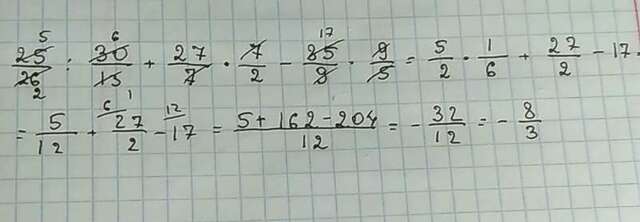 5/2 25/26 : 6 30/15 + 27/7 · 7/2 - 17 85/9 · 9/5 = 5/2 · 1/6 + 27/2 - 17
= 5/12 + 6/ 1 27/2 - 12/ 17 = (5 + 162 - 204)/12 = - 32/12 = - 8/3